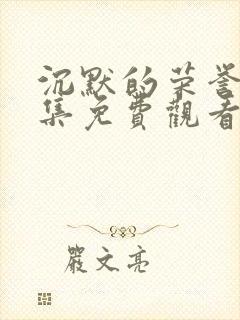 沉默的荣誉
集免費觀看
嚴文亮